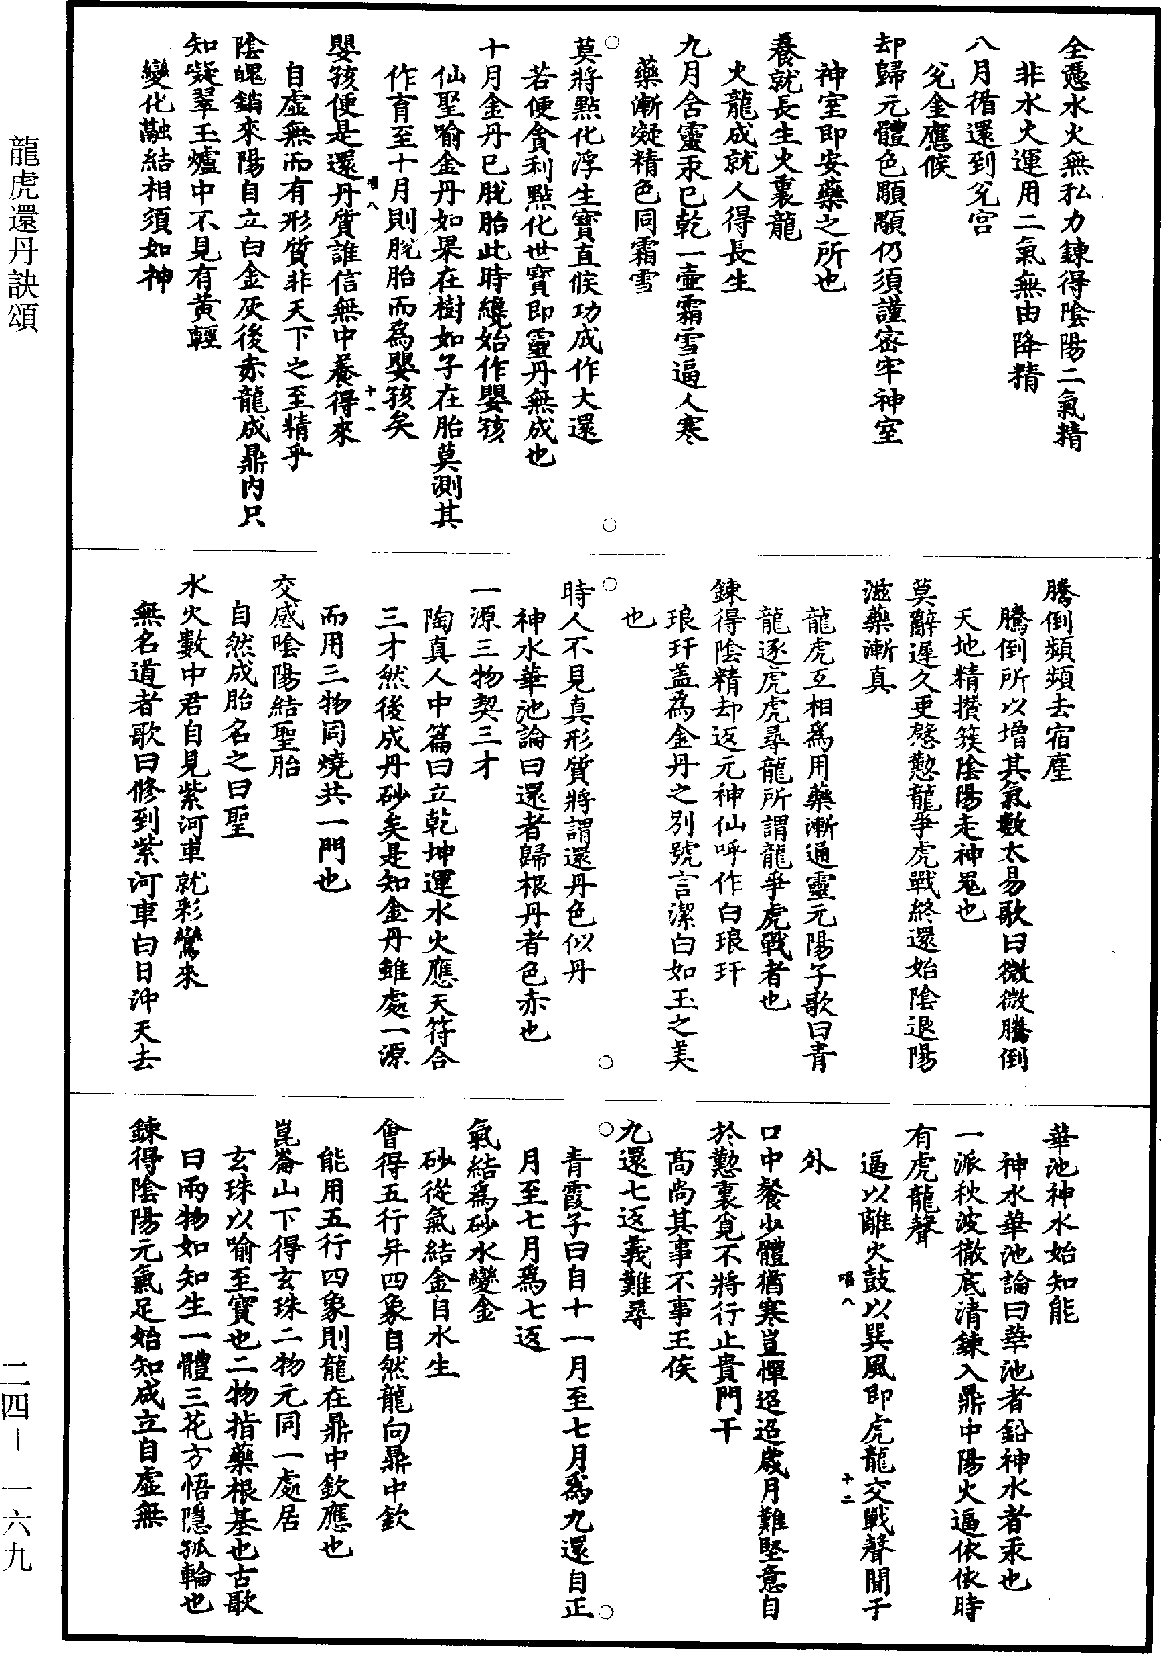 全憑水火無私力鍊得陰陽二氣精
非水火運用二氣無由降精
八月循還到兌宮
兌金應候
却歸元體色顒顒仍須謹密牢神室
神室即安藥之所也
養就長生火裏龍
火龍成就人得長生
九月含靈汞已乾一壺霜雪逼人寒
藥漸凝精色同霜雪
莫將點化浮生寶直候功成作大還
若便貪利點化世寶即靈丹無成也
十月金丹已脫胎此時纔始作嬰孩
仙聖喻金丹如果在樹如子在胎莫測其
作育至十月則脫胎而為嬰孩矣
唱八
十一
嬰孩便是還丹質誰信無中養得來
自虛無而有形質非天下之至精乎
陰魄銷來陽自立白金灰後赤龍成鼎內只
知凝翠玉爐中不見有黃輕
變化融結相須如神
騰倒頻頻去宿塵
騰倒所以增其氣數太易歌曰微微騰倒
天地精攢簇陰陽走神鬼也
莫辭遲久更慇懃龍爭虎戰終還始陰退陽
滋藥漸真
龍虎互相為用藥漸通靈元陽子歌曰青
龍逐虎虎尋龍所謂龍爭虎戰者也
鍊得陰精却返元神仙呼作白琅玕
琅玕蓋為金丹之別號言潔白如玉之美
也
時人不見真形質將謂還丹色似丹
神水華池論曰還者歸根丹者色赤也
一源三物契三才
陶真人中篇曰立乾坤運水火應天符合
三才然後成丹砂矣是知金丹雖處一源
而用三物同燒共一門也
交感陰陽結聖胎
自然成胎名之曰聖
水火數中君自見紫河車就彩鸞來
無名道者歌曰修到紫河車白日沖天去
華池神水始知能
神水華池論曰華池者鉛神水者汞也
一派秋波徹底清鍊入鼎中陽火逼依依時
有虎龍聲
逼以離火鼓以巽風即虎龍交戰聲聞于
外
唱八
十二
口中餐少體猶寒豈憚迢迢歲月難堅意自
於懃裏覓不將行止貴門干
高尚其事不事王侯
九還七返義難尋
青霞子曰自十一月至七月為九還自正
月至七月為七返
氣結為砂水變金
砂從氣結金自水生
會得五行并四象自然龍向鼎中欽
能用五行四象則龍在鼎中欽應也
崑崙山下得玄珠二物元同一處居
玄珠以喻至寶也二物指藥根基也古歌
曰兩物如知生一體三花方悟隱孤輪也
鍊得陰陽元氣足始知成立自虛無
龍虎還丹訣頌
二四－一六九